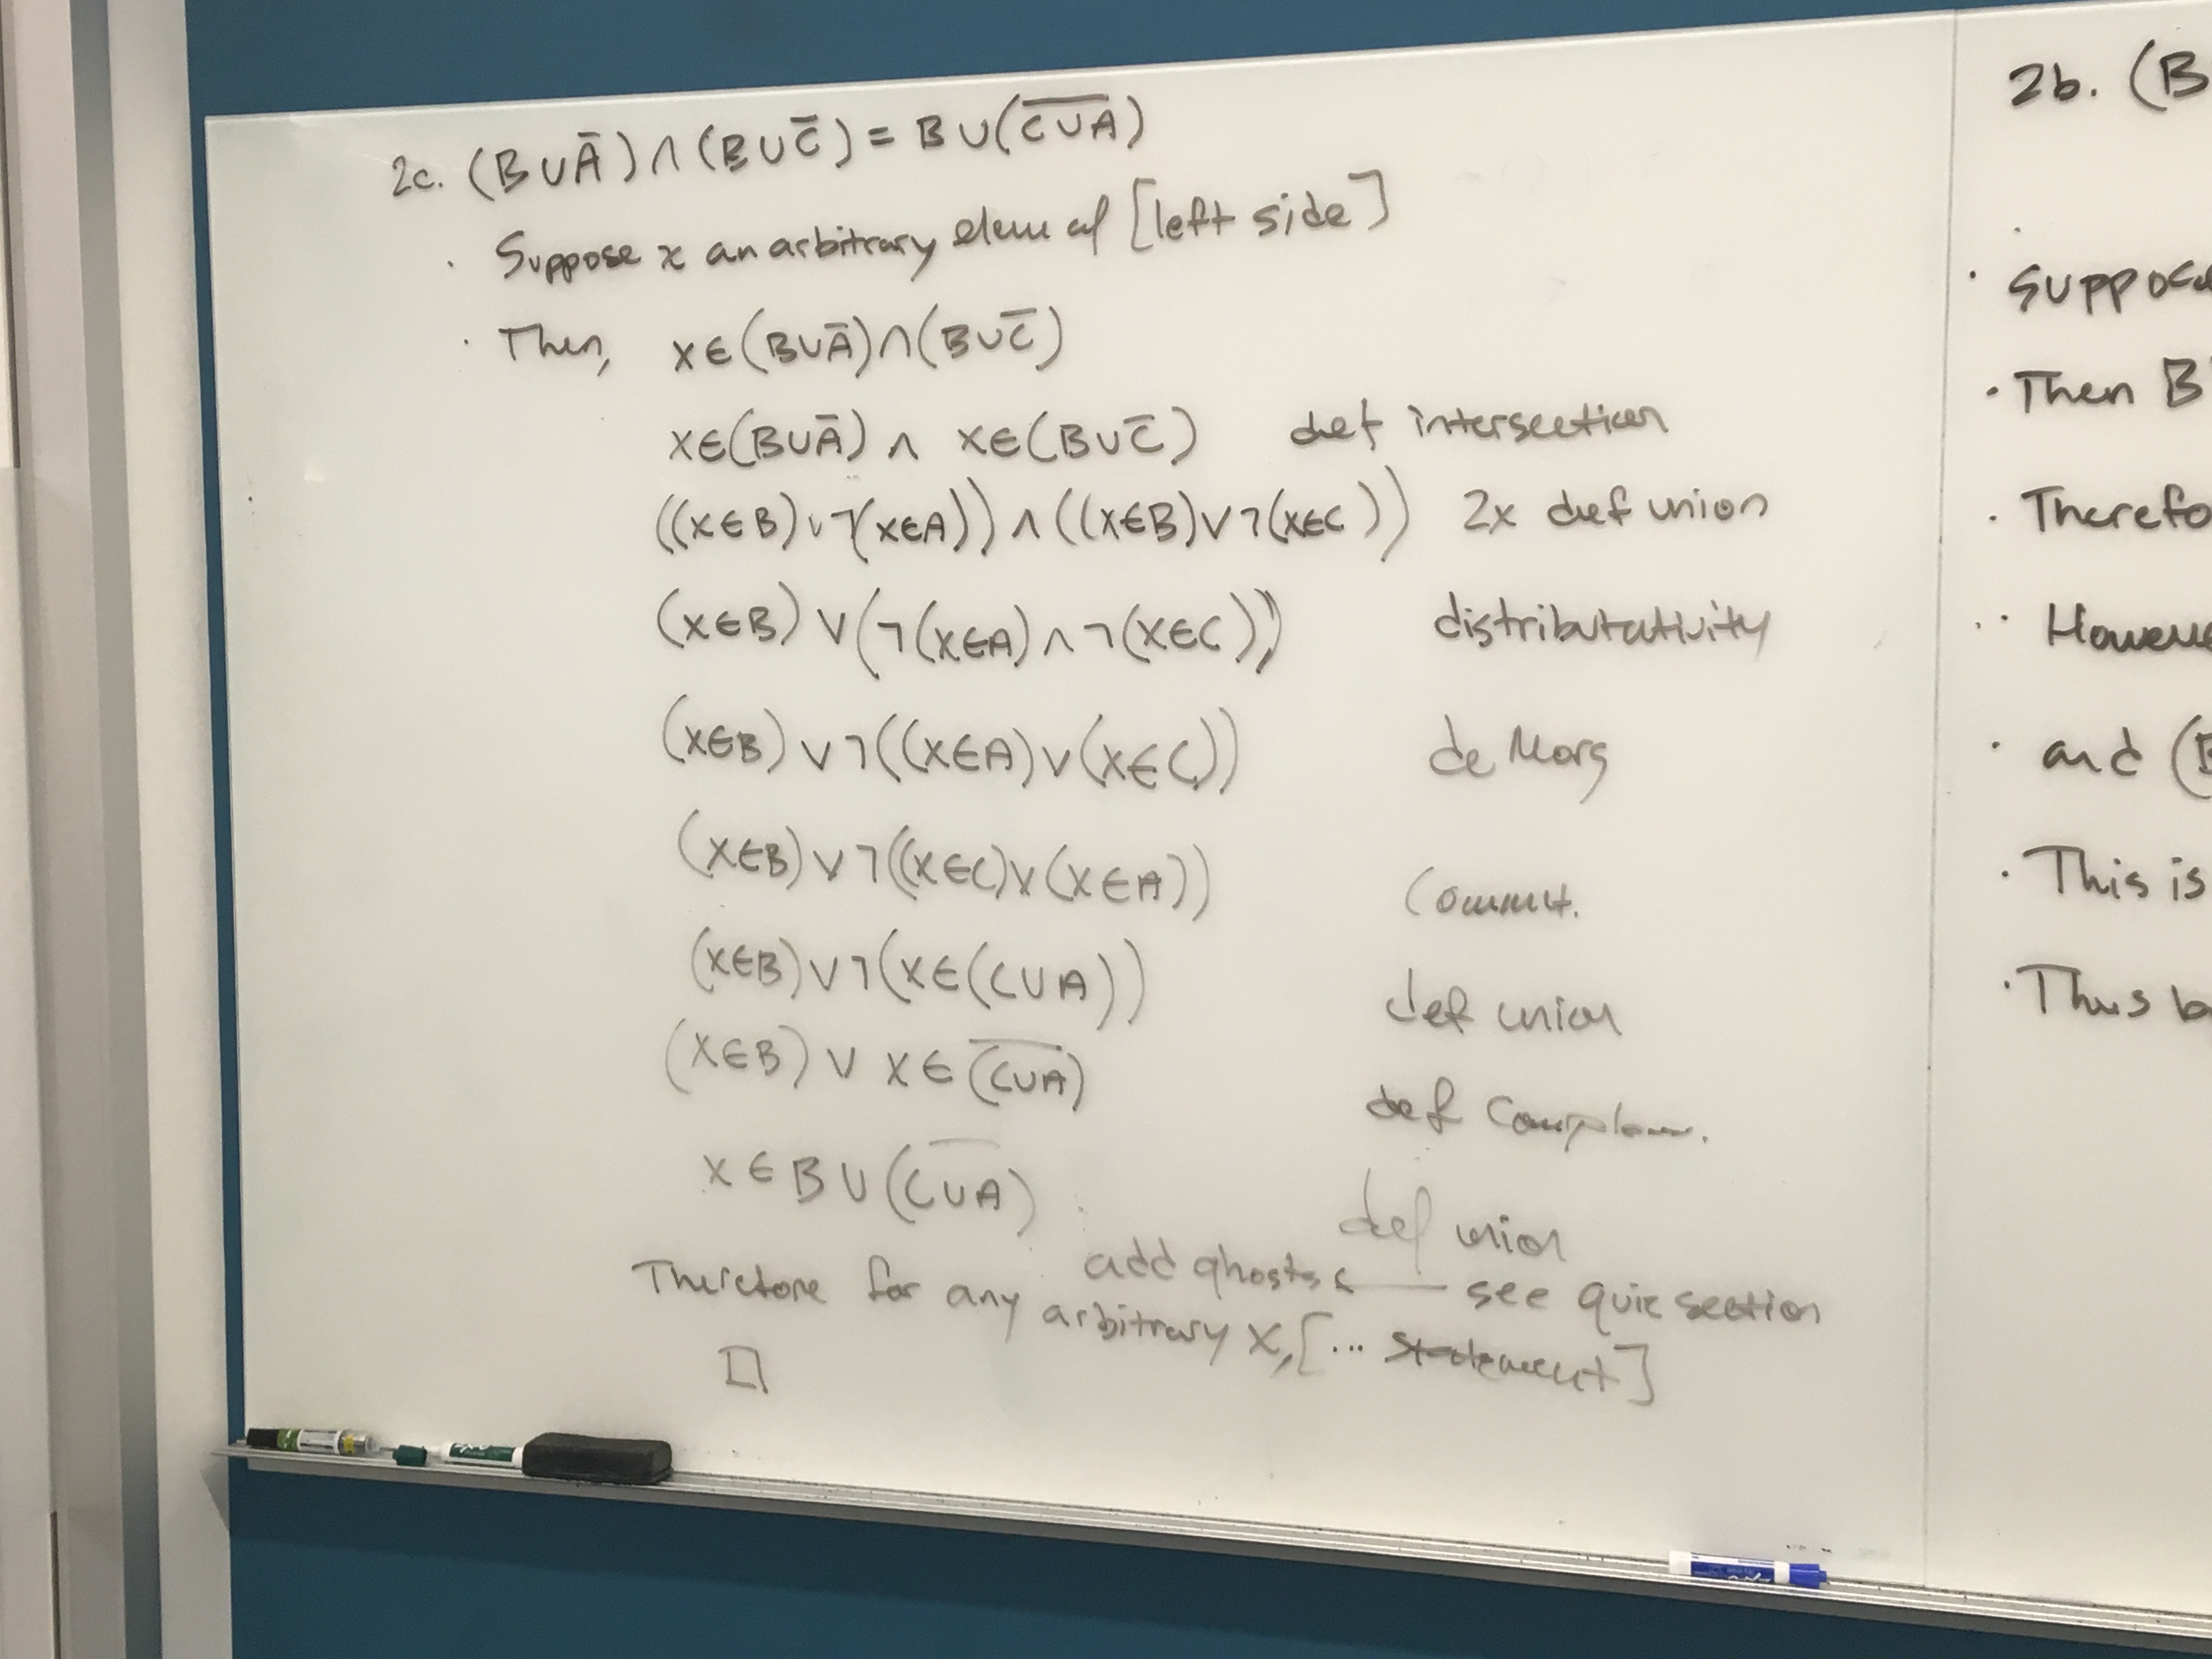 2c. (B∪A̅)∩(B∪C̅) = B∪(C̅∪̅A̅)
· Suppose x an arbitrary elem of [left side]
· Then, x∈(B∪A̅)∩(B∪C̅)
x∈(B∪A̅) ∧ x∈(B∪C̅) def intersection
((x∈B)∨¬(x∈A))∧((x∈B)∨¬(x∈C)) 2x def union
(x∈B)∨(¬(x∈A)∧¬(x∈C)) distributativity
(x∈B)∨¬((x∈A)∨(x∈C)) de Morg
(x∈B)∨¬((x∈C)∨(x∈A)) Commut.
(x∈B)∨¬(x∈(C∪A)) def union
(x∈B)∨ x∈(C̅∪̅A̅) def
x∈B∪(C̅∪̅A̅) def union
add ghosts ← see quiz section
Therefore for any arbitrary x, [... statement]
□
2b. (B
· Suppose
· Then B
· Therefo
· Howeve
· and (B
· This is
· Thus b